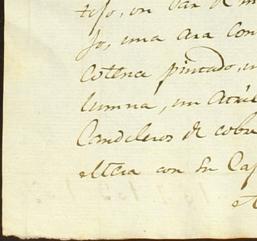 tejo, un par de m
jo, una ara con
Cotena pintado, u
lumna, un Atril
Candeleros de cobr
elteia con su Caj